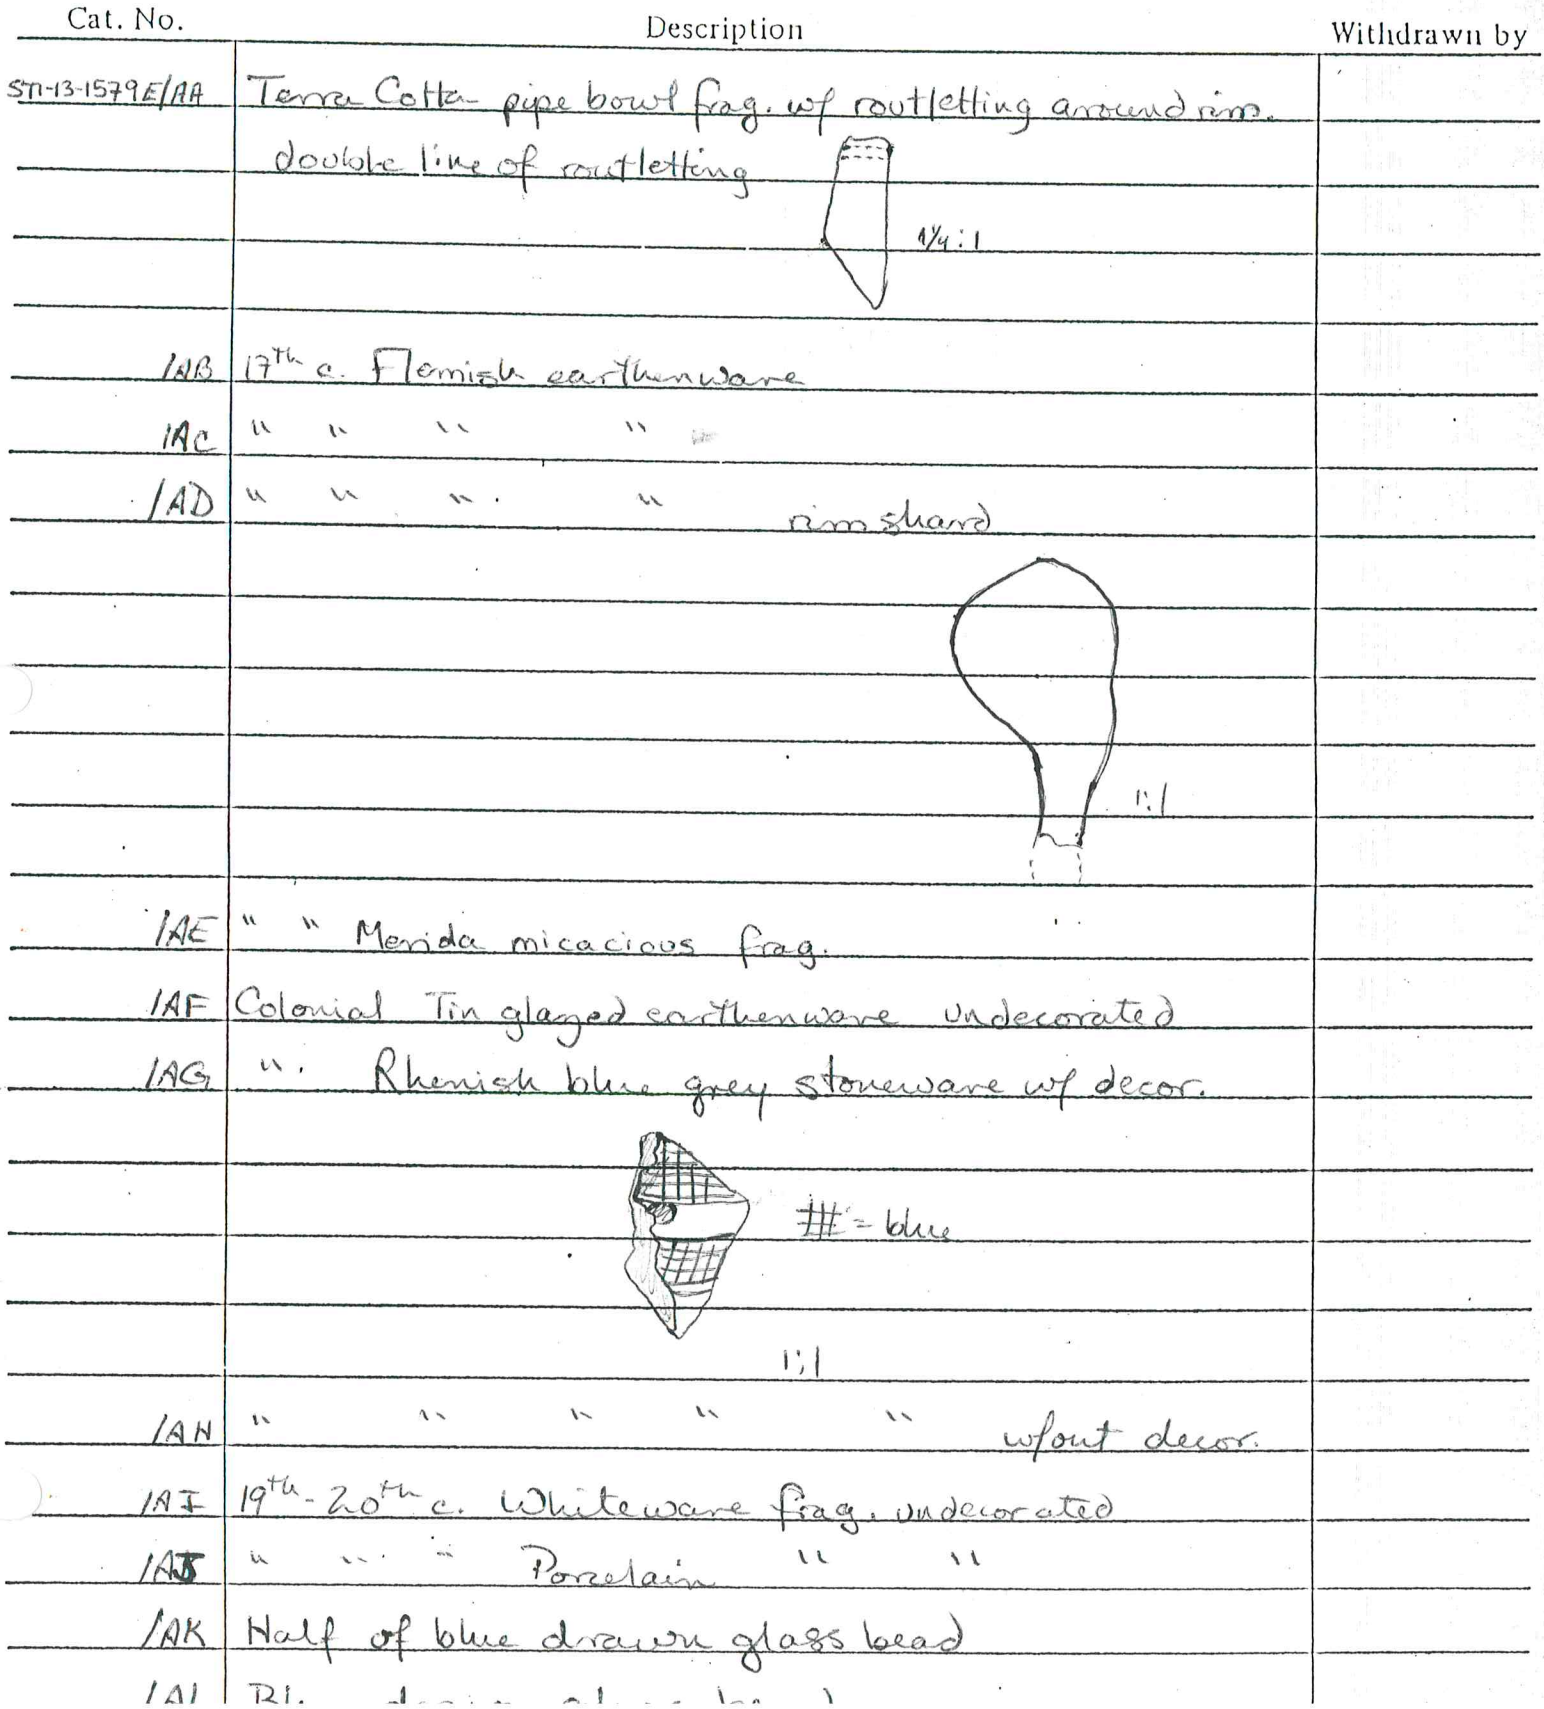 Cat. No. Description Withdrawn by
ST1-13-1579E/AA Terra Cotta pipe bowl frag. w/ routletting around rim.
double line of routletting
1¼:1
/AB 17th c. Flemish earthenware
/AC " " " "
/AD " " " " rim shard
1:1
/AE " " Merida micacious frag.
/AF Colonial Tin glazed earthenware undecorated
/AG " Rhenish blue grey stoneware w/ decor.
# = blue
1:1
/AH " " " " " w/out decor.
/AI 19th-20th c. Whiteware frag. undecorated
/AJ " " " Porcelain " "
/AK Half of blue drawn glass bead
/AL